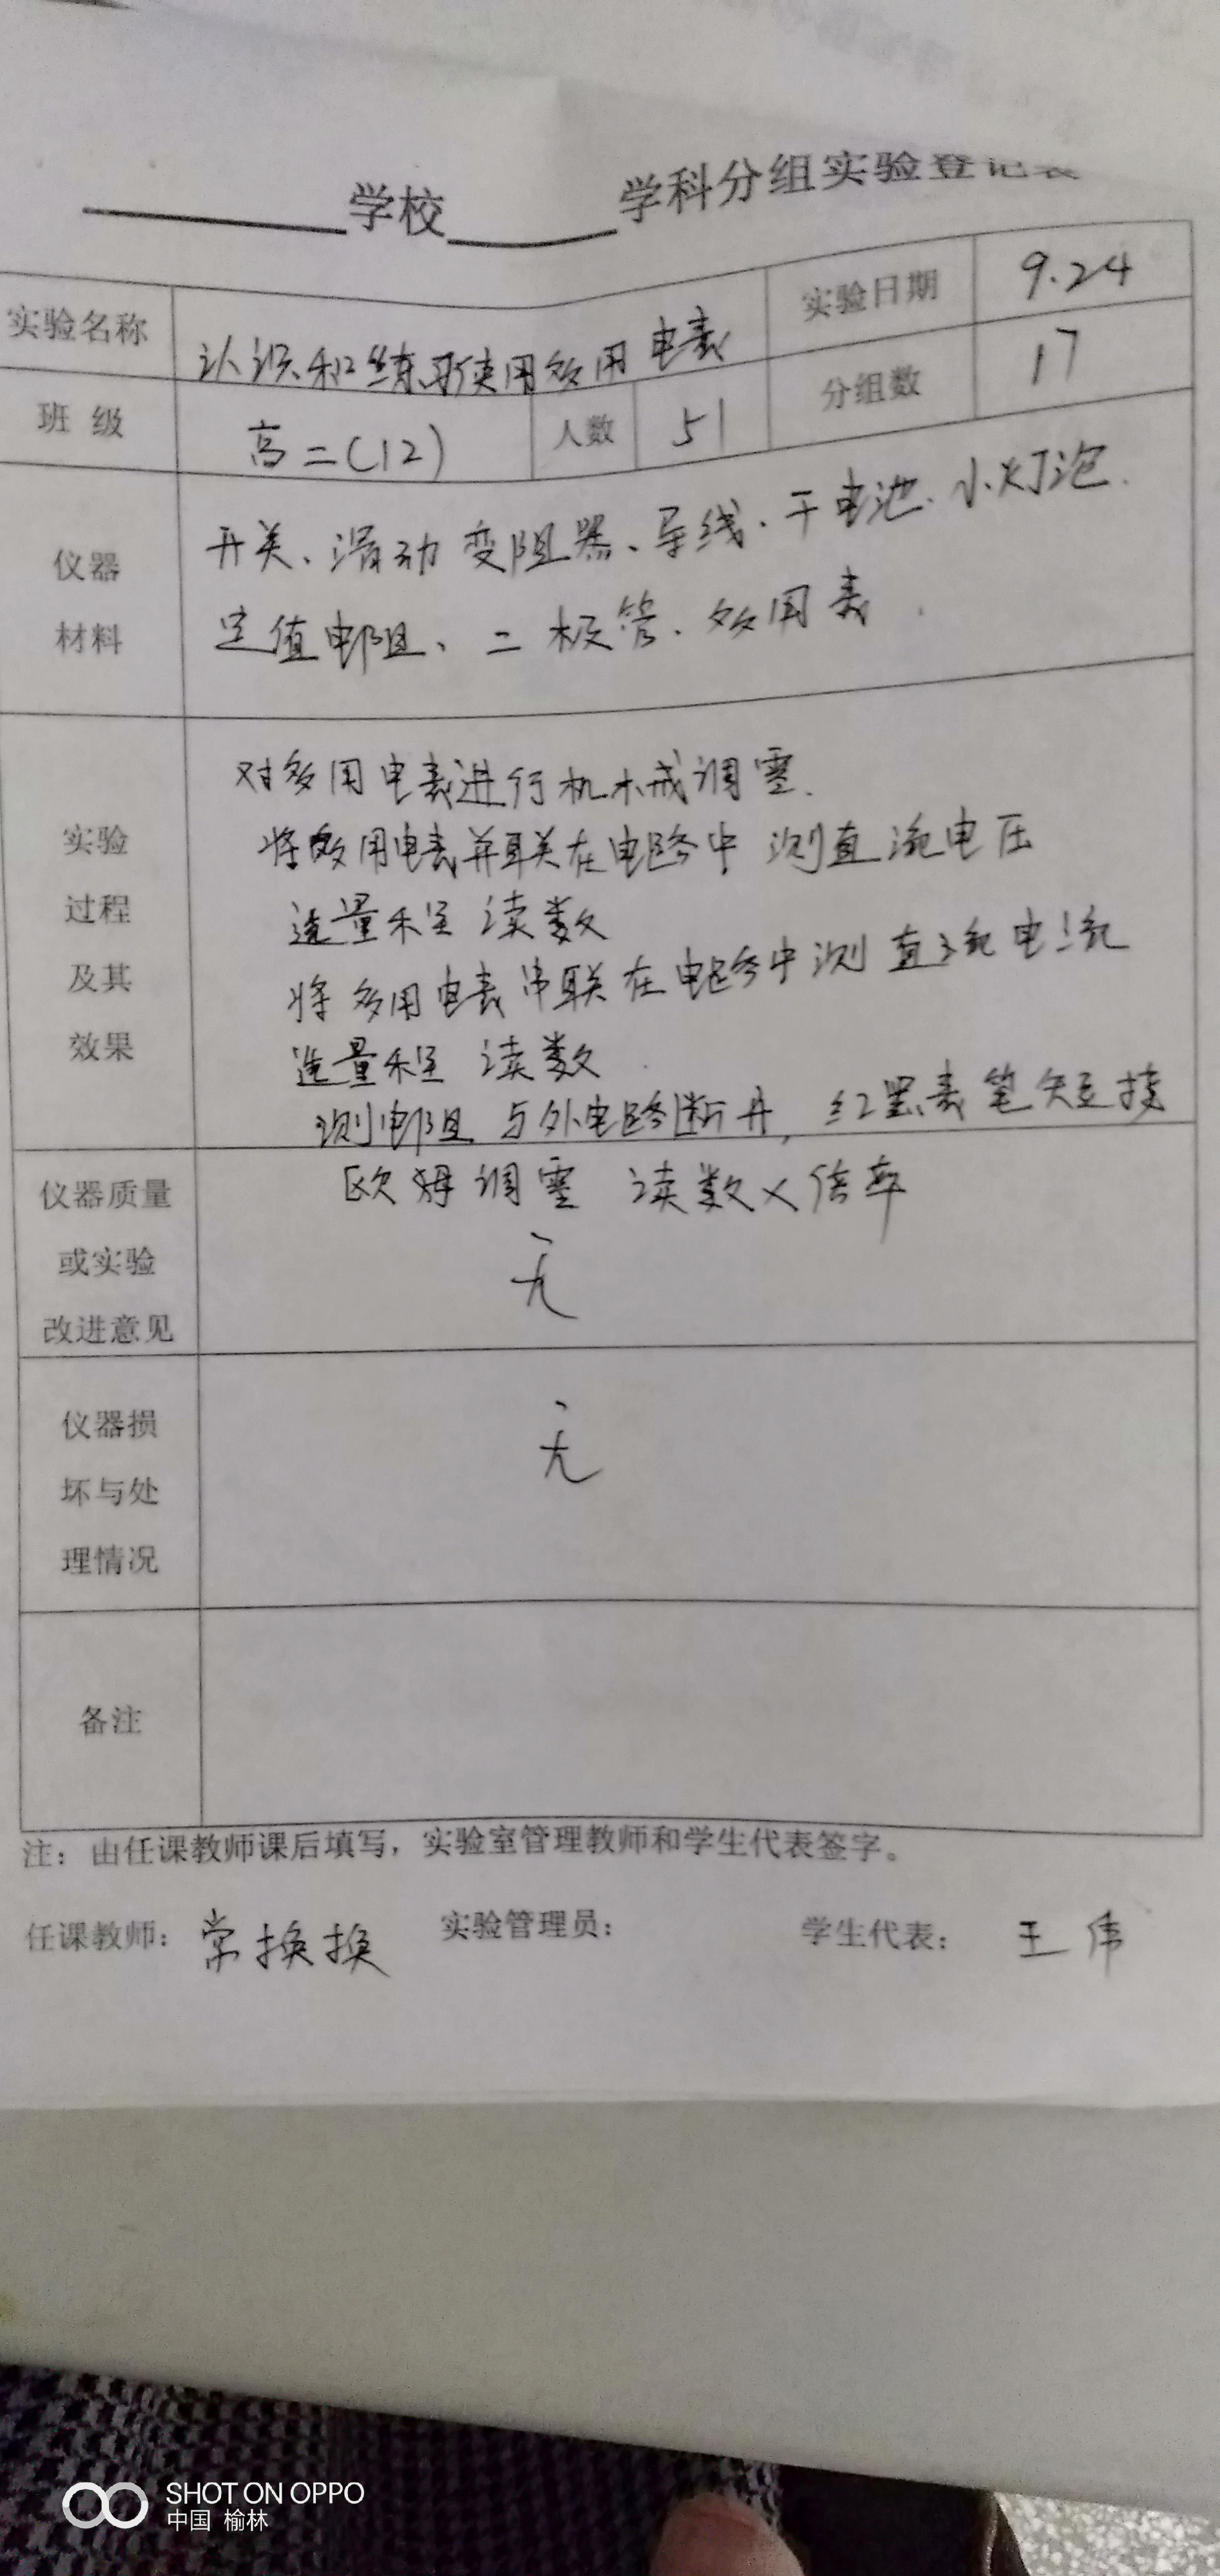 学校 学科分组实验登记表
实验名称 认识和练习使用多用电表 实验日期 9.24
班 级 高二(12) 人数 51 分组数 17
仪器
材料
开关、滑动变阻器、导线、干电池、小灯泡、
定值电阻、二极管、多用表
实验
过程
及其
效果
对多用电表进行机械调零.
将多用电表并联在电路中 测直流电压
选量程 读数
将多用电表串联在电路中测 直流电流
选量程 读数
测电阻 与外电路断开, 红黑表笔短接
欧姆调零 读数×倍率
仪器质量
或实验
改进意见
无
仪器损
坏与处
理情况
无
备注
注：由任课教师课后填写，实验室管理教师和学生代表签字。
任课教师：常换换 实验管理员： 学生代表： 王伟
SHOT ON OPPO
中国 榆林